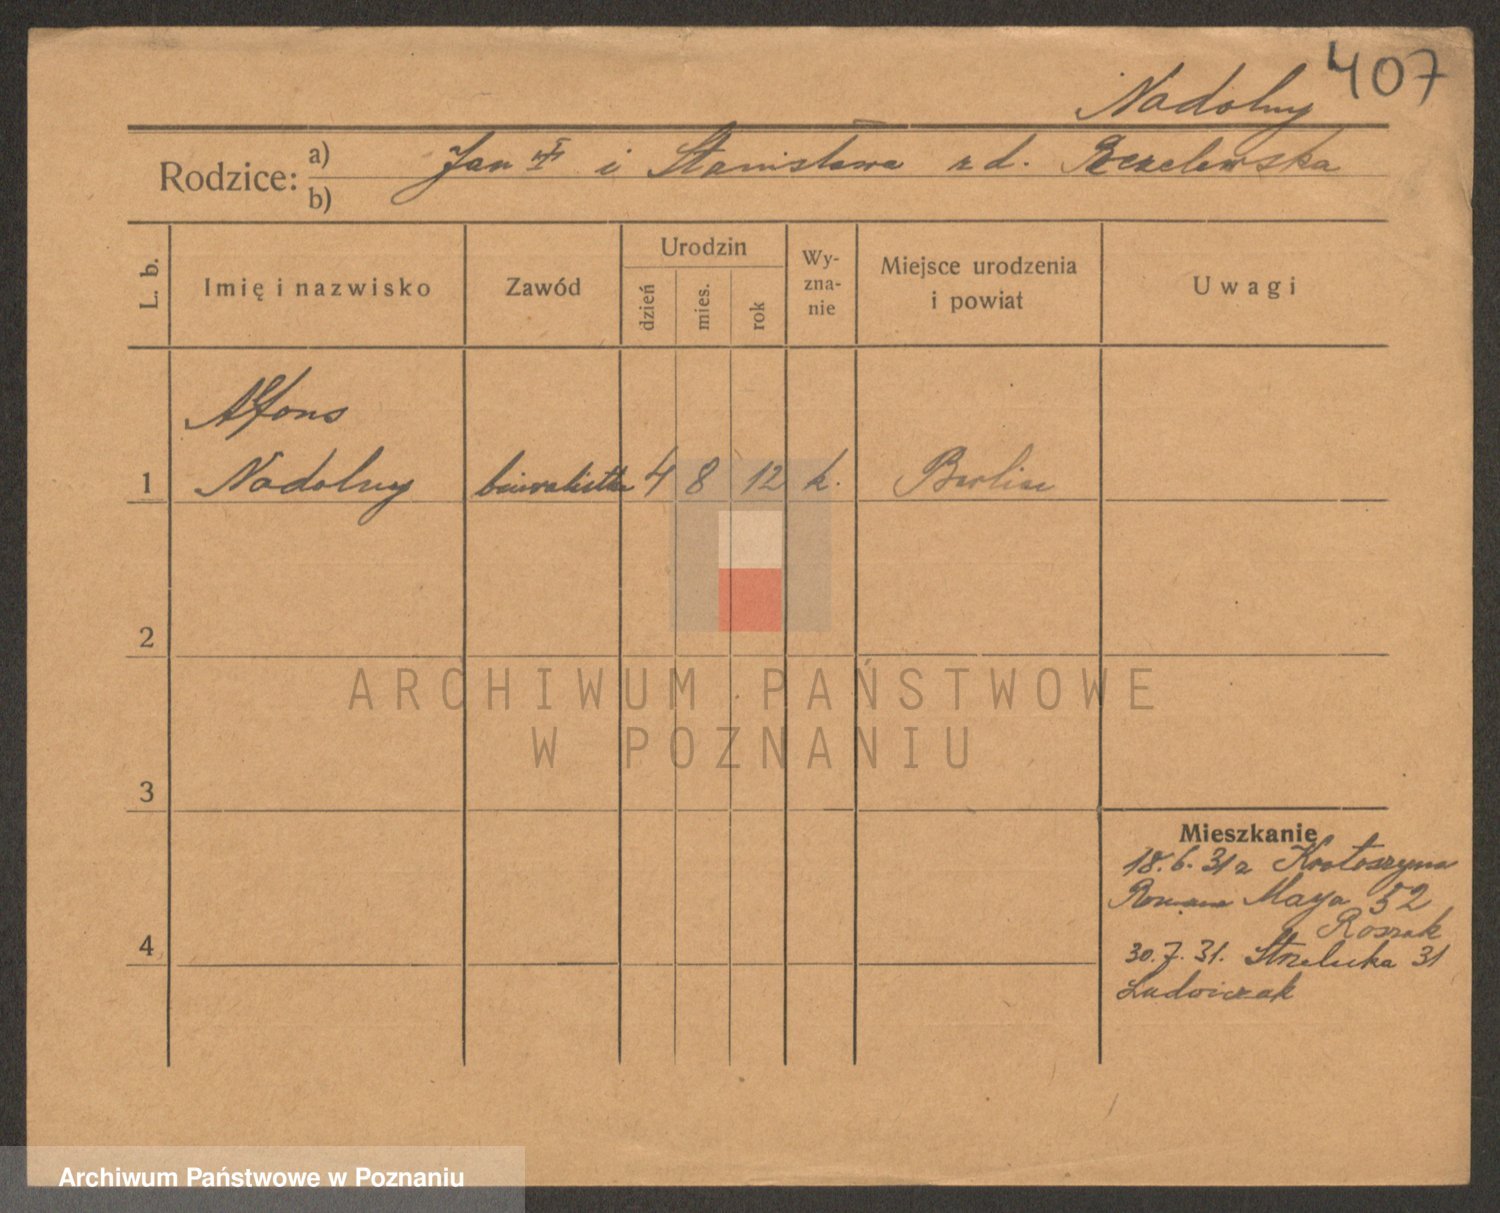 407
Nadolny
Rodzice: a) Jan i Stanisława z d.
b)
L. b.
Imię i nazwisko
Zawód
Urodzin
dzień
mies.
rok
Wy-
zna-
nie
Miejsce urodzenia
i powiat
Uwagi
Alfons
1 Nadolny biuralistka 4 8 12 k. Berlin
2
ARCHIWUM PAŃSTWOWE
W POZNANIU
3
Mieszkanie
18.6.31 z Krotoszyna
Romana Maya 52
Roszak
30.7.31. Strzelecka 31
4
Ludwiczak
Archiwum Państwowe w Poznaniu